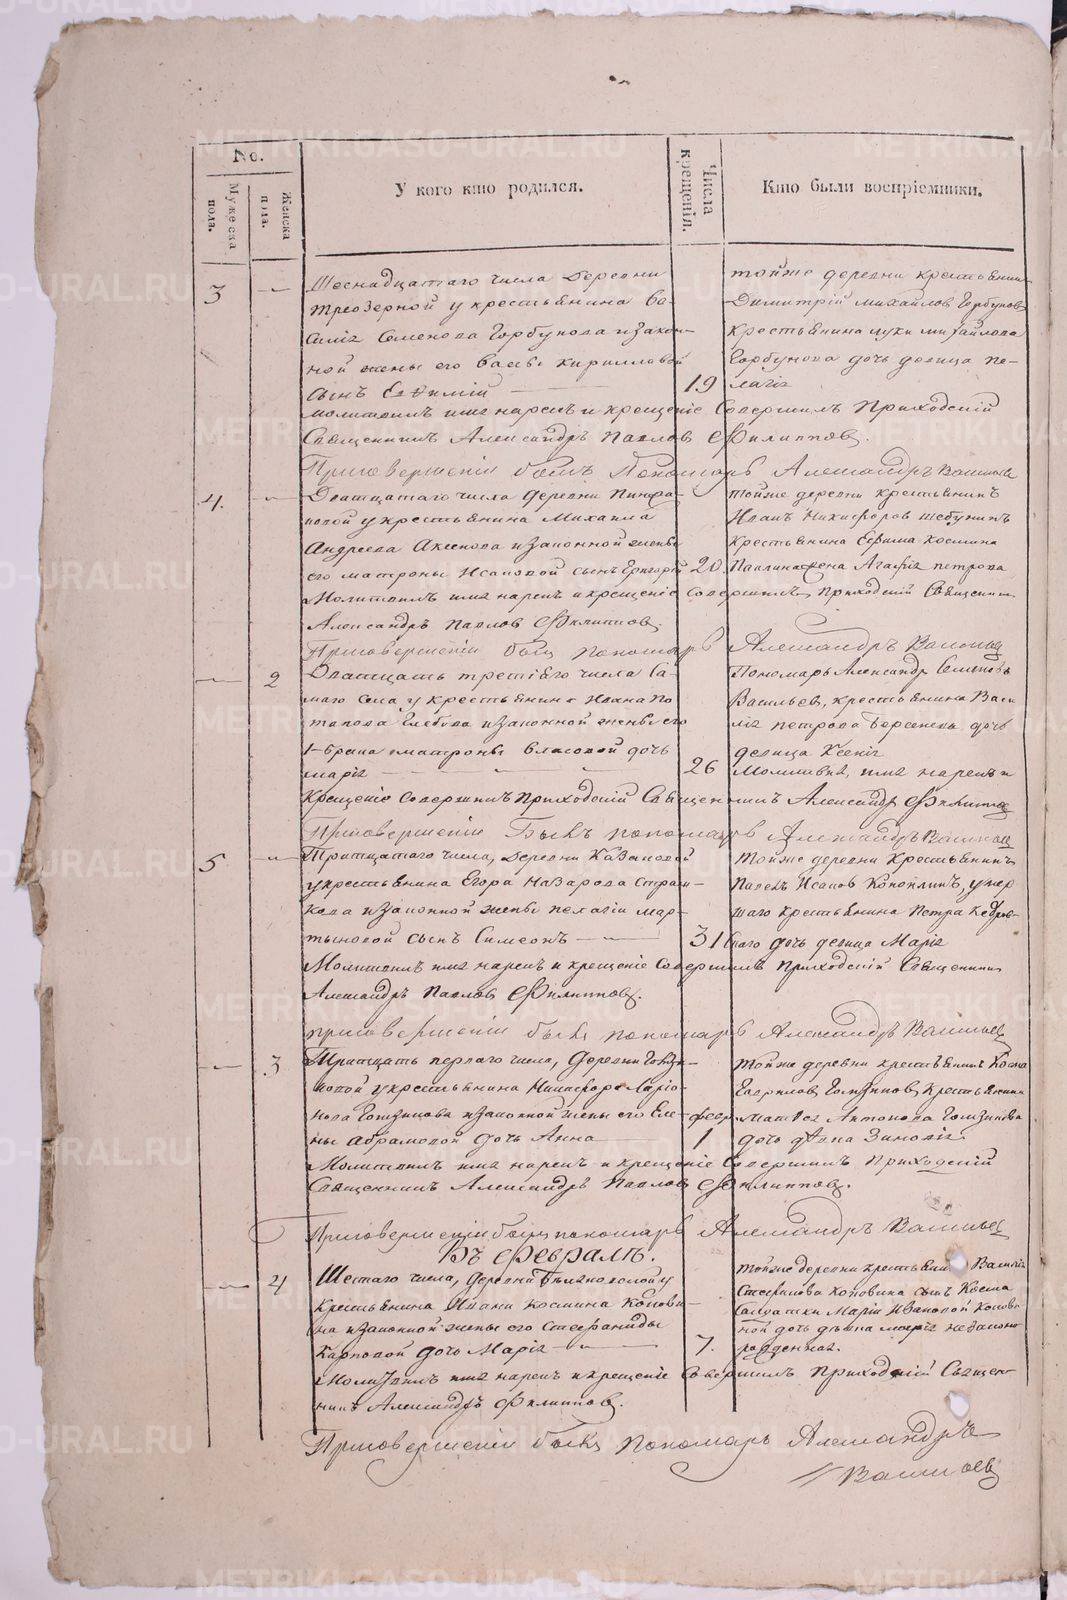 No.
Мужеска пола.
Женска пола.
У кого кто родился.
Числа крещенія.
Кто были воспріемники.
3
Шеснадцатаго числа Деревни
трiозерной у крестьянина Ва-
силія Семенова Горбунова и закон-
ной жены его Кирилловой
сынъ Евфимій
19
тойже деревни крестьянинъ
Димитрій Михайлов Горбунов
крестьянина Луки Михайлова
Горбунова дочь девица Пе-
лагія
Молитвилъ имя нарекъ и крещеніе Совершилъ Приходскій
Священникъ Александръ Павлов Филиппов.
При совершеніи былъ Пономарь Александръ Васильев
4.
Двадцатаго числа деревни
у крестьянина Михаила
Андреева Аксенова и законной жены
его Матроны Исаковой сынъ Григорій
20.
тойже деревни крестьянинъ
Иванъ Никифоров
крестьянина Ефима Космина
жена Агафія Петрова
Молитвилъ имя нарекъ и крещеніе Совершилъ Приходскій Священникъ
Александръ Павлов Филиппов.
При совершеніи былъ пономарь Александръ Васильев
2
Двадцать третьяго числа Са-
маго Села у крестьянина Ивана По
тапова Глебова и законной жены его
1 брака Матроны Власовой дочь
Марія
26
Пономарь Александр Семенов
Васильев, крестьянина Васи
лія Петрова дочь
девица Ксенія
Молитвилъ, имя нарекъ и
Крещеніе Совершилъ Приходскій Священникъ Александр Филиппов
При совершеніи Былъ пономарь Александръ Васильев
5
Тритцатаго числа, Деревни Казаковой
у крестьянина Егора Назарова
и законной жены Пелагіи Мар-
тыновой сынъ Симеонъ
31
Тойже деревни Крестьянинъ
Исаков Кононкинъ, умер
шаго крестьянина Петра
дочь девица Марія
Молитвилъ имя нарекъ и крещеніе Совершилъ Приходскій Священникъ
Александръ Павлов Филиппов.
При совершеніи былъ пономарь Александръ Васильев
3
Тритцать перваго числа, Деревни
у крестьянина Никифора Ларіо-
нова и законной жены его Еле-
ны Абрамовой дочь Анна
февр.
1
тойже деревни крестьянинъ Косма
Гаврилов крестьянина
Матвея Антонова
дочь Зиновія
Молитвилъ имя нарекъ и крещеніе Совершилъ Приходскій
Священникъ Александръ Павлов Филиппов.
При совершеніи былъ пономарь Александръ Васильев
Въ Февралѣ.
4
Шестаго числа, Деревни у
Крестьянина Ивана Космина Конови-
на и законной жены его Стефаниды
Карповой дочь Марія
7.
Тойже деревни крестьянина Василія
Стефанова Коновина сынъ Косма
Солдатки Маріи Ивановой Конови
ной дочь Марія незаконно
рожденная.
Молитвилъ имя нарекъ и крещеніе Совершилъ Приходскій Священ-
никъ Александръ Филиппов.
При совершеніи былъ пономарь Александръ
Васильев